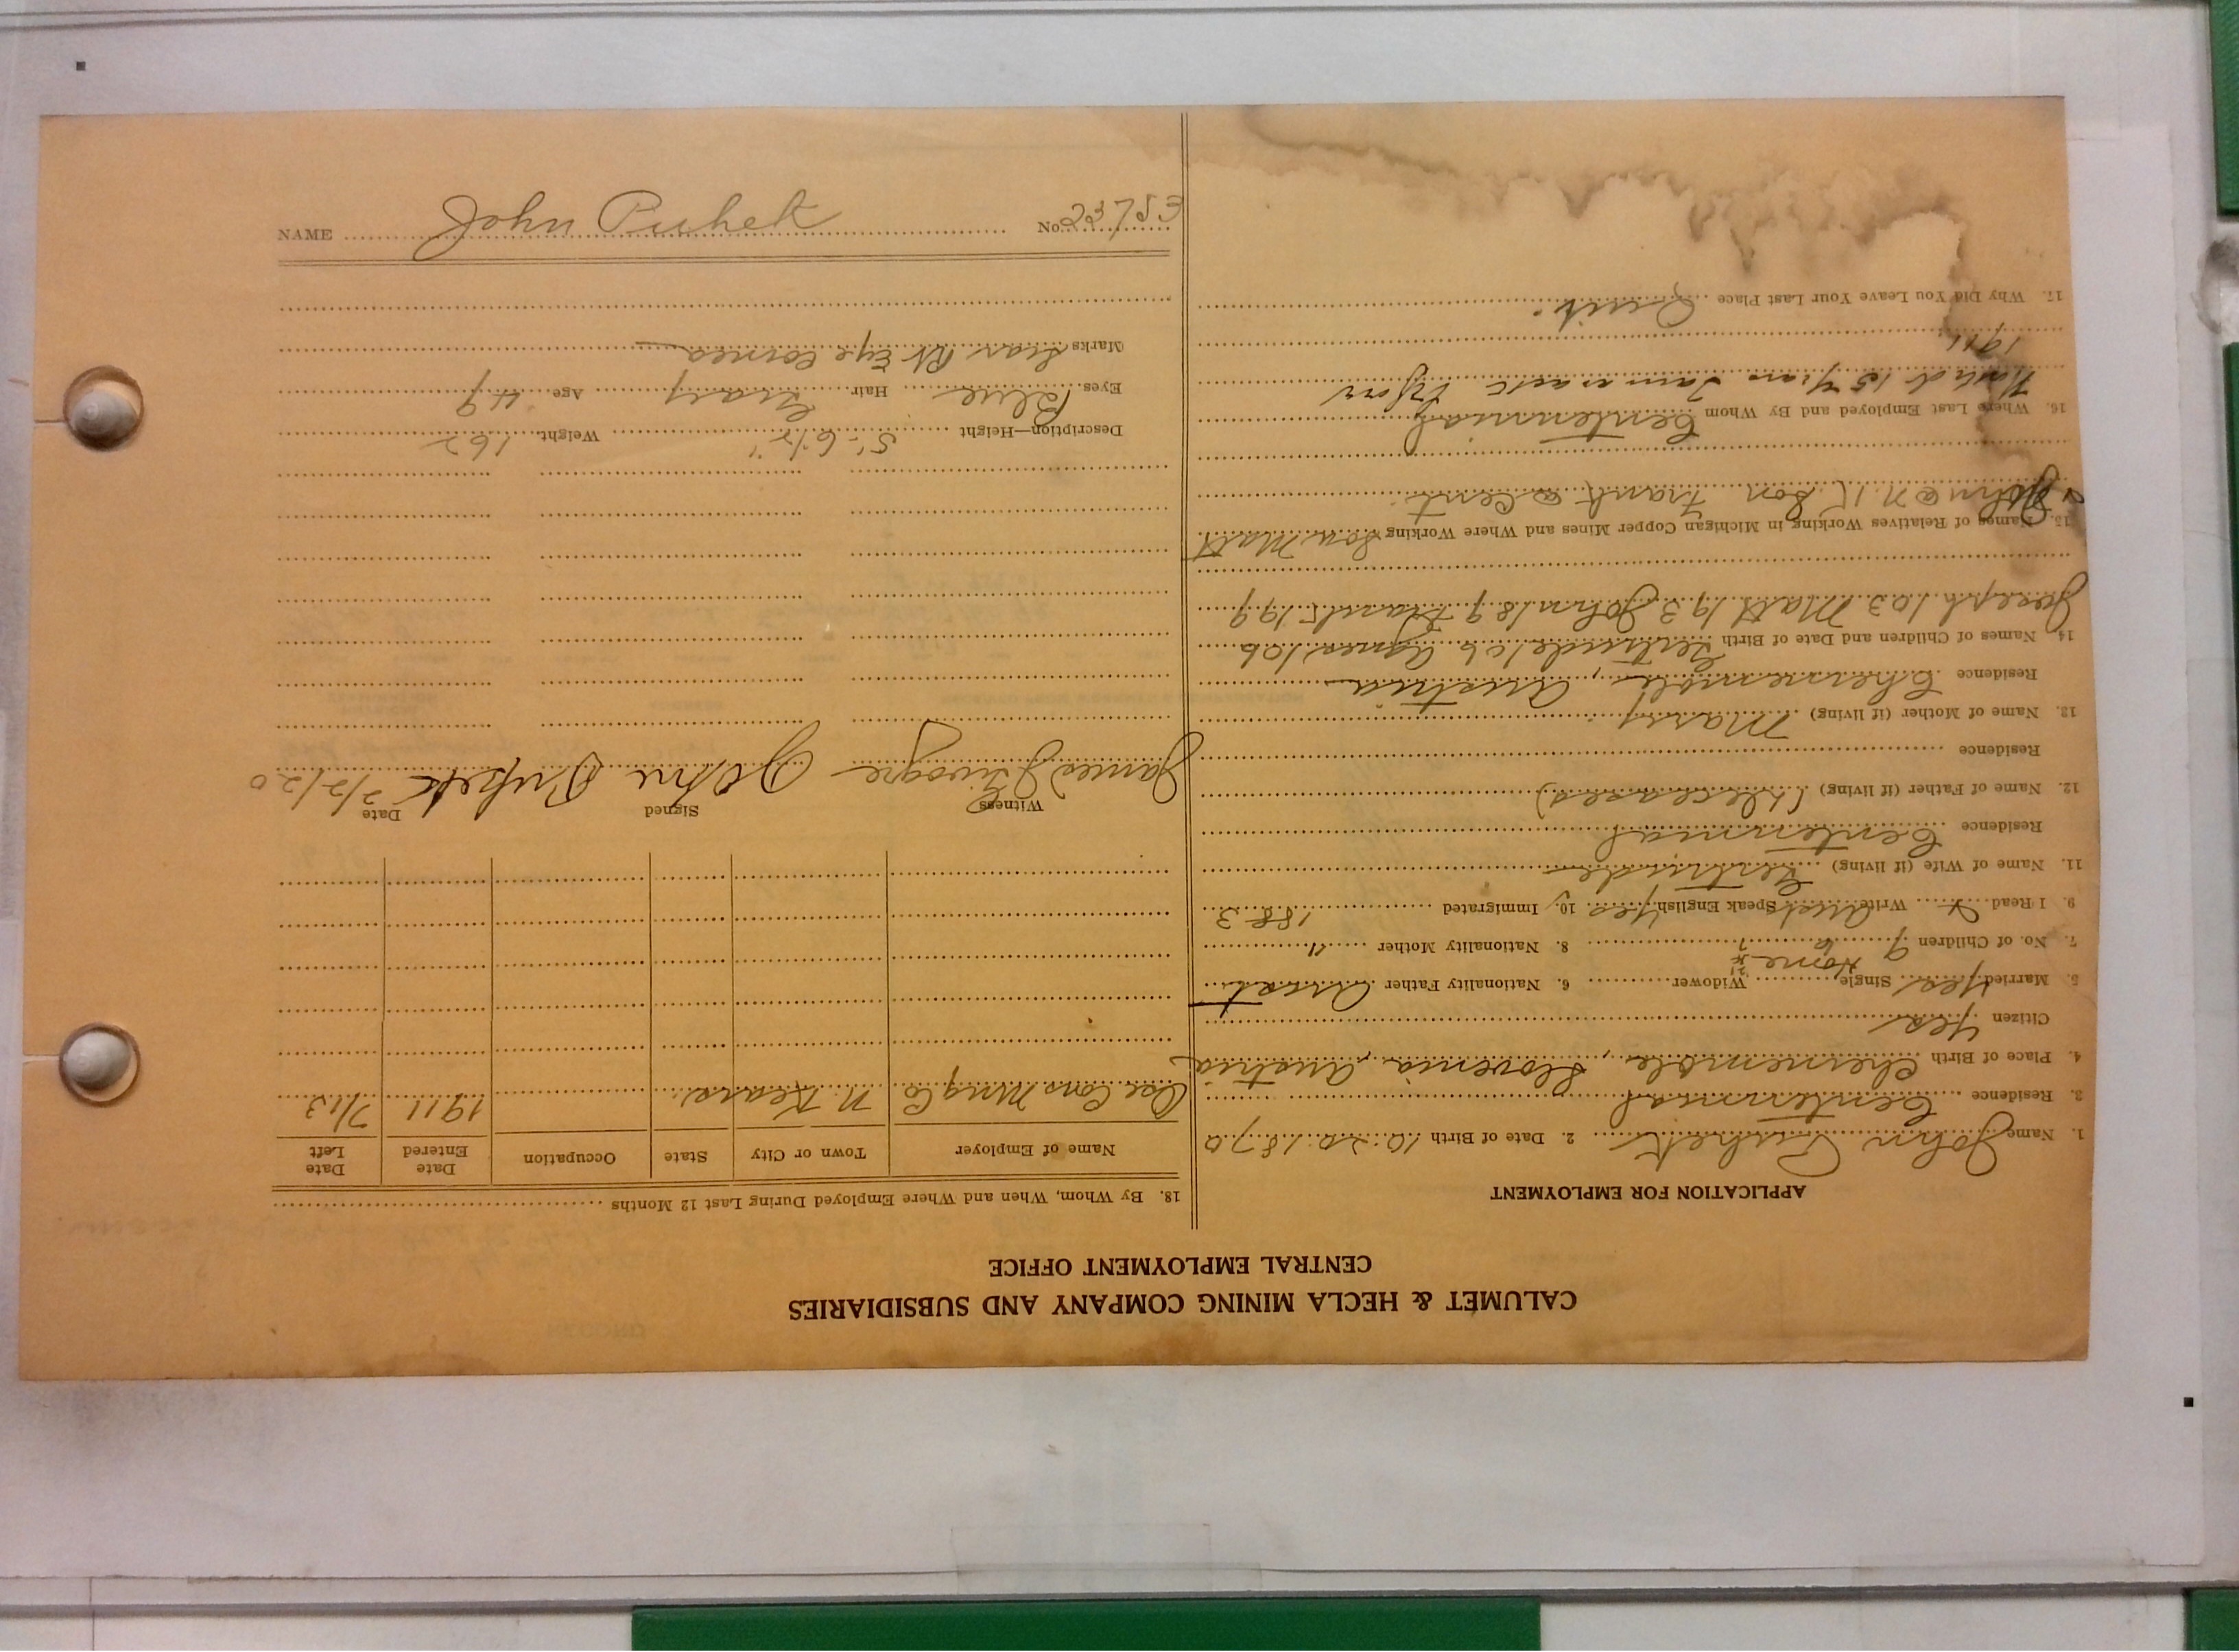 NAME John Puhek No. 23753
CALUMET & HECLA MINING COMPANY AND SUBSIDIARIES
CENTRAL EMPLOYMENT OFFICE
APPLICATION FOR EMPLOYMENT
1. Name John Puhek 2. Date of Birth 10-20-1870
3. Residence Centennial
4. Place of Birth Chernemble, Slovenia, Austria
Citizen Yes
5. Married Yes Single Widower 6. Nationality Father Aust
Home
7. No. of Children 9 6 8. Nationality Mother "
9. I Read Write Aust Speak English Yes 10. Immigrated 1883
11. Name of Wife (if living) Gertrude
Residence Centennial
12. Name of Father (if living) (Deceased)
Residence
13. Name of Mother (if living) Mary
Residence Chernemble, Austria
14. Names of Children and Date of Birth Gertrude 10 6 Agnes 10 6
Joseph 10 3 Matt 19 3 John 18 9 Frank 19 9
15. Names of Relatives Working in Michigan Copper Mines and Where Working Son Matt
John @ N.K. Son Frank @ Cent.
16. Where Last Employed and By Whom Centennial
Worked 15 Years Tamarack Before
1911
17. Why Did You Leave Your Last Place Quit.
18. By Whom, When and Where Employed During Last 12 Months
Name of Employer Town or City State Occupation Date Entered Date Left
Osc. Cons Mng Co N. Kears. 1911 7/13
Witness Signed Date
James John Puhek 2/2/20
Description—Height 5' 6 1/2" Weight 162
Eyes Blue Hair Gray Age 49
Marks Scar Rt Eye Corner